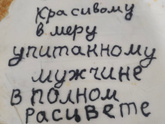 красивому
в меру
упитанному
мужчине
в полном
расцвете